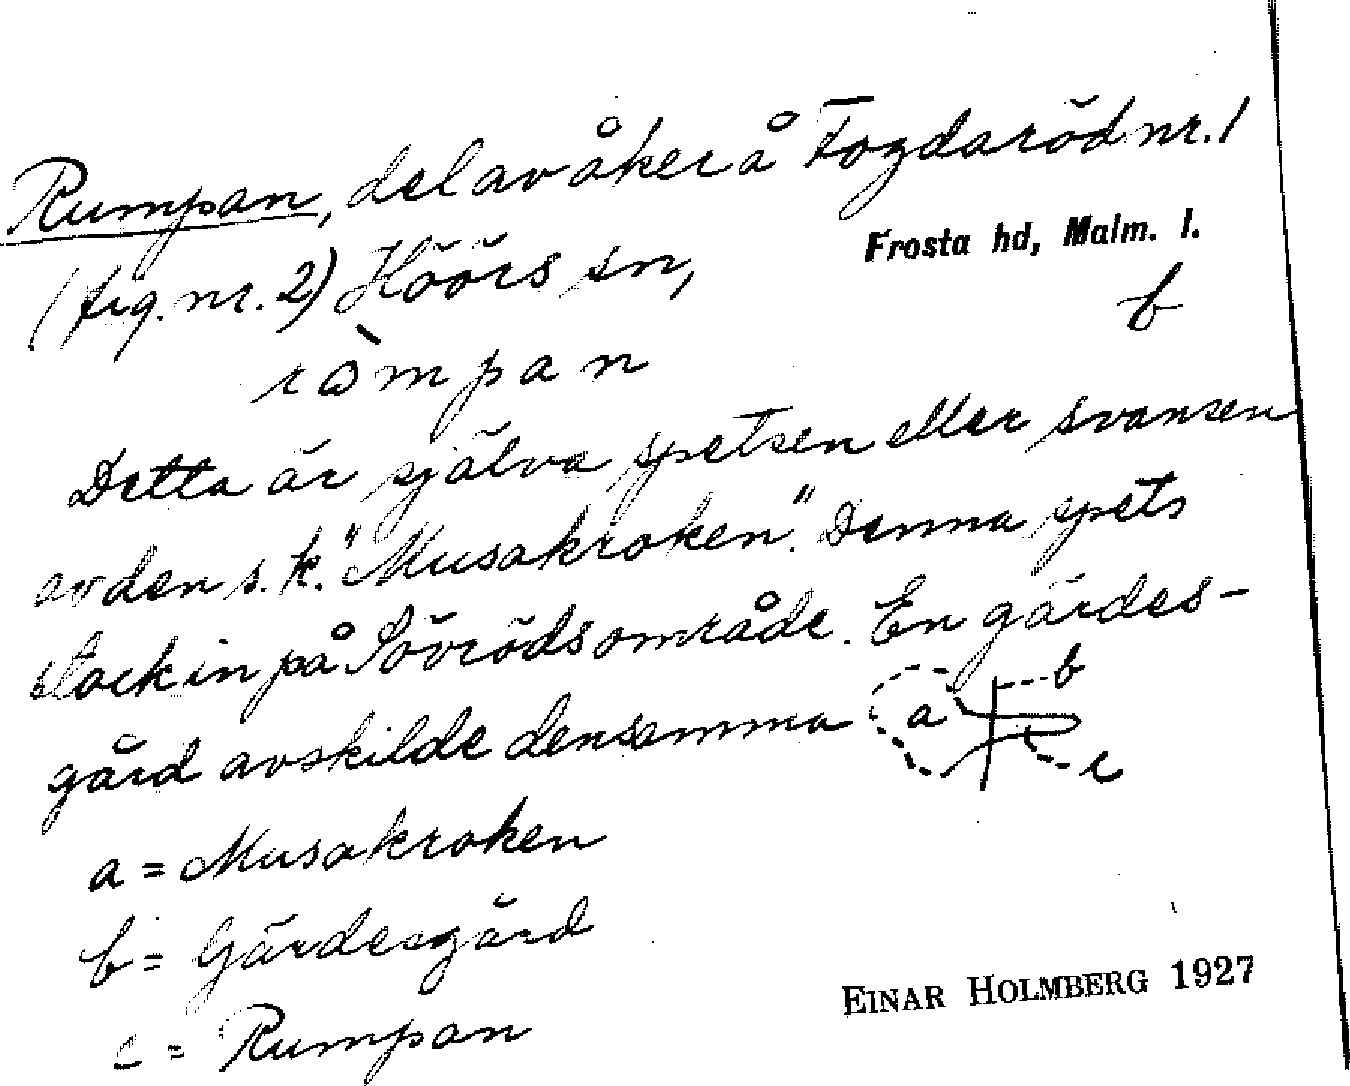 Rumpan, del av åker å Fogdaröd nr. 1
(fig. nr. 2) Höörs sn,
Frosta hd, Malm. l.
b
ròmpan
Detta är själva spetsen eller svansen
av den s.k. "Musakroken". Denna spets
stack in på Sövrödsområde. En gärdes-
gård avskilde densamma
a
b
c
a = Musakroken
b = Gärdesgård
c = Rumpan
EINAR HOLMBERG 1927